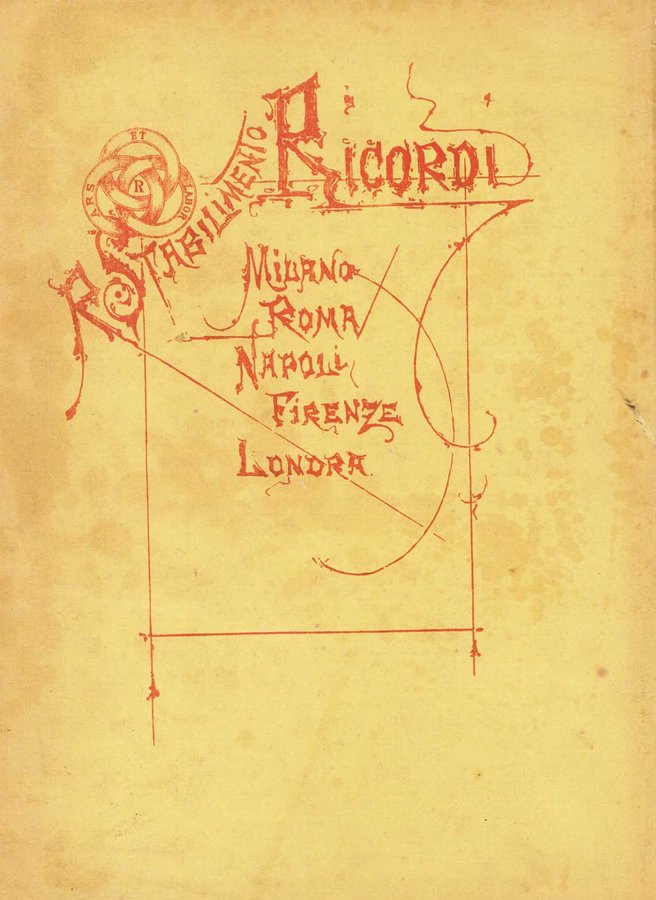 ARS ET LABOR
R
Ro STABILIMENTO RICORDI
MILANO
ROMA
NAPOLI
FIRENZE
LONDRA